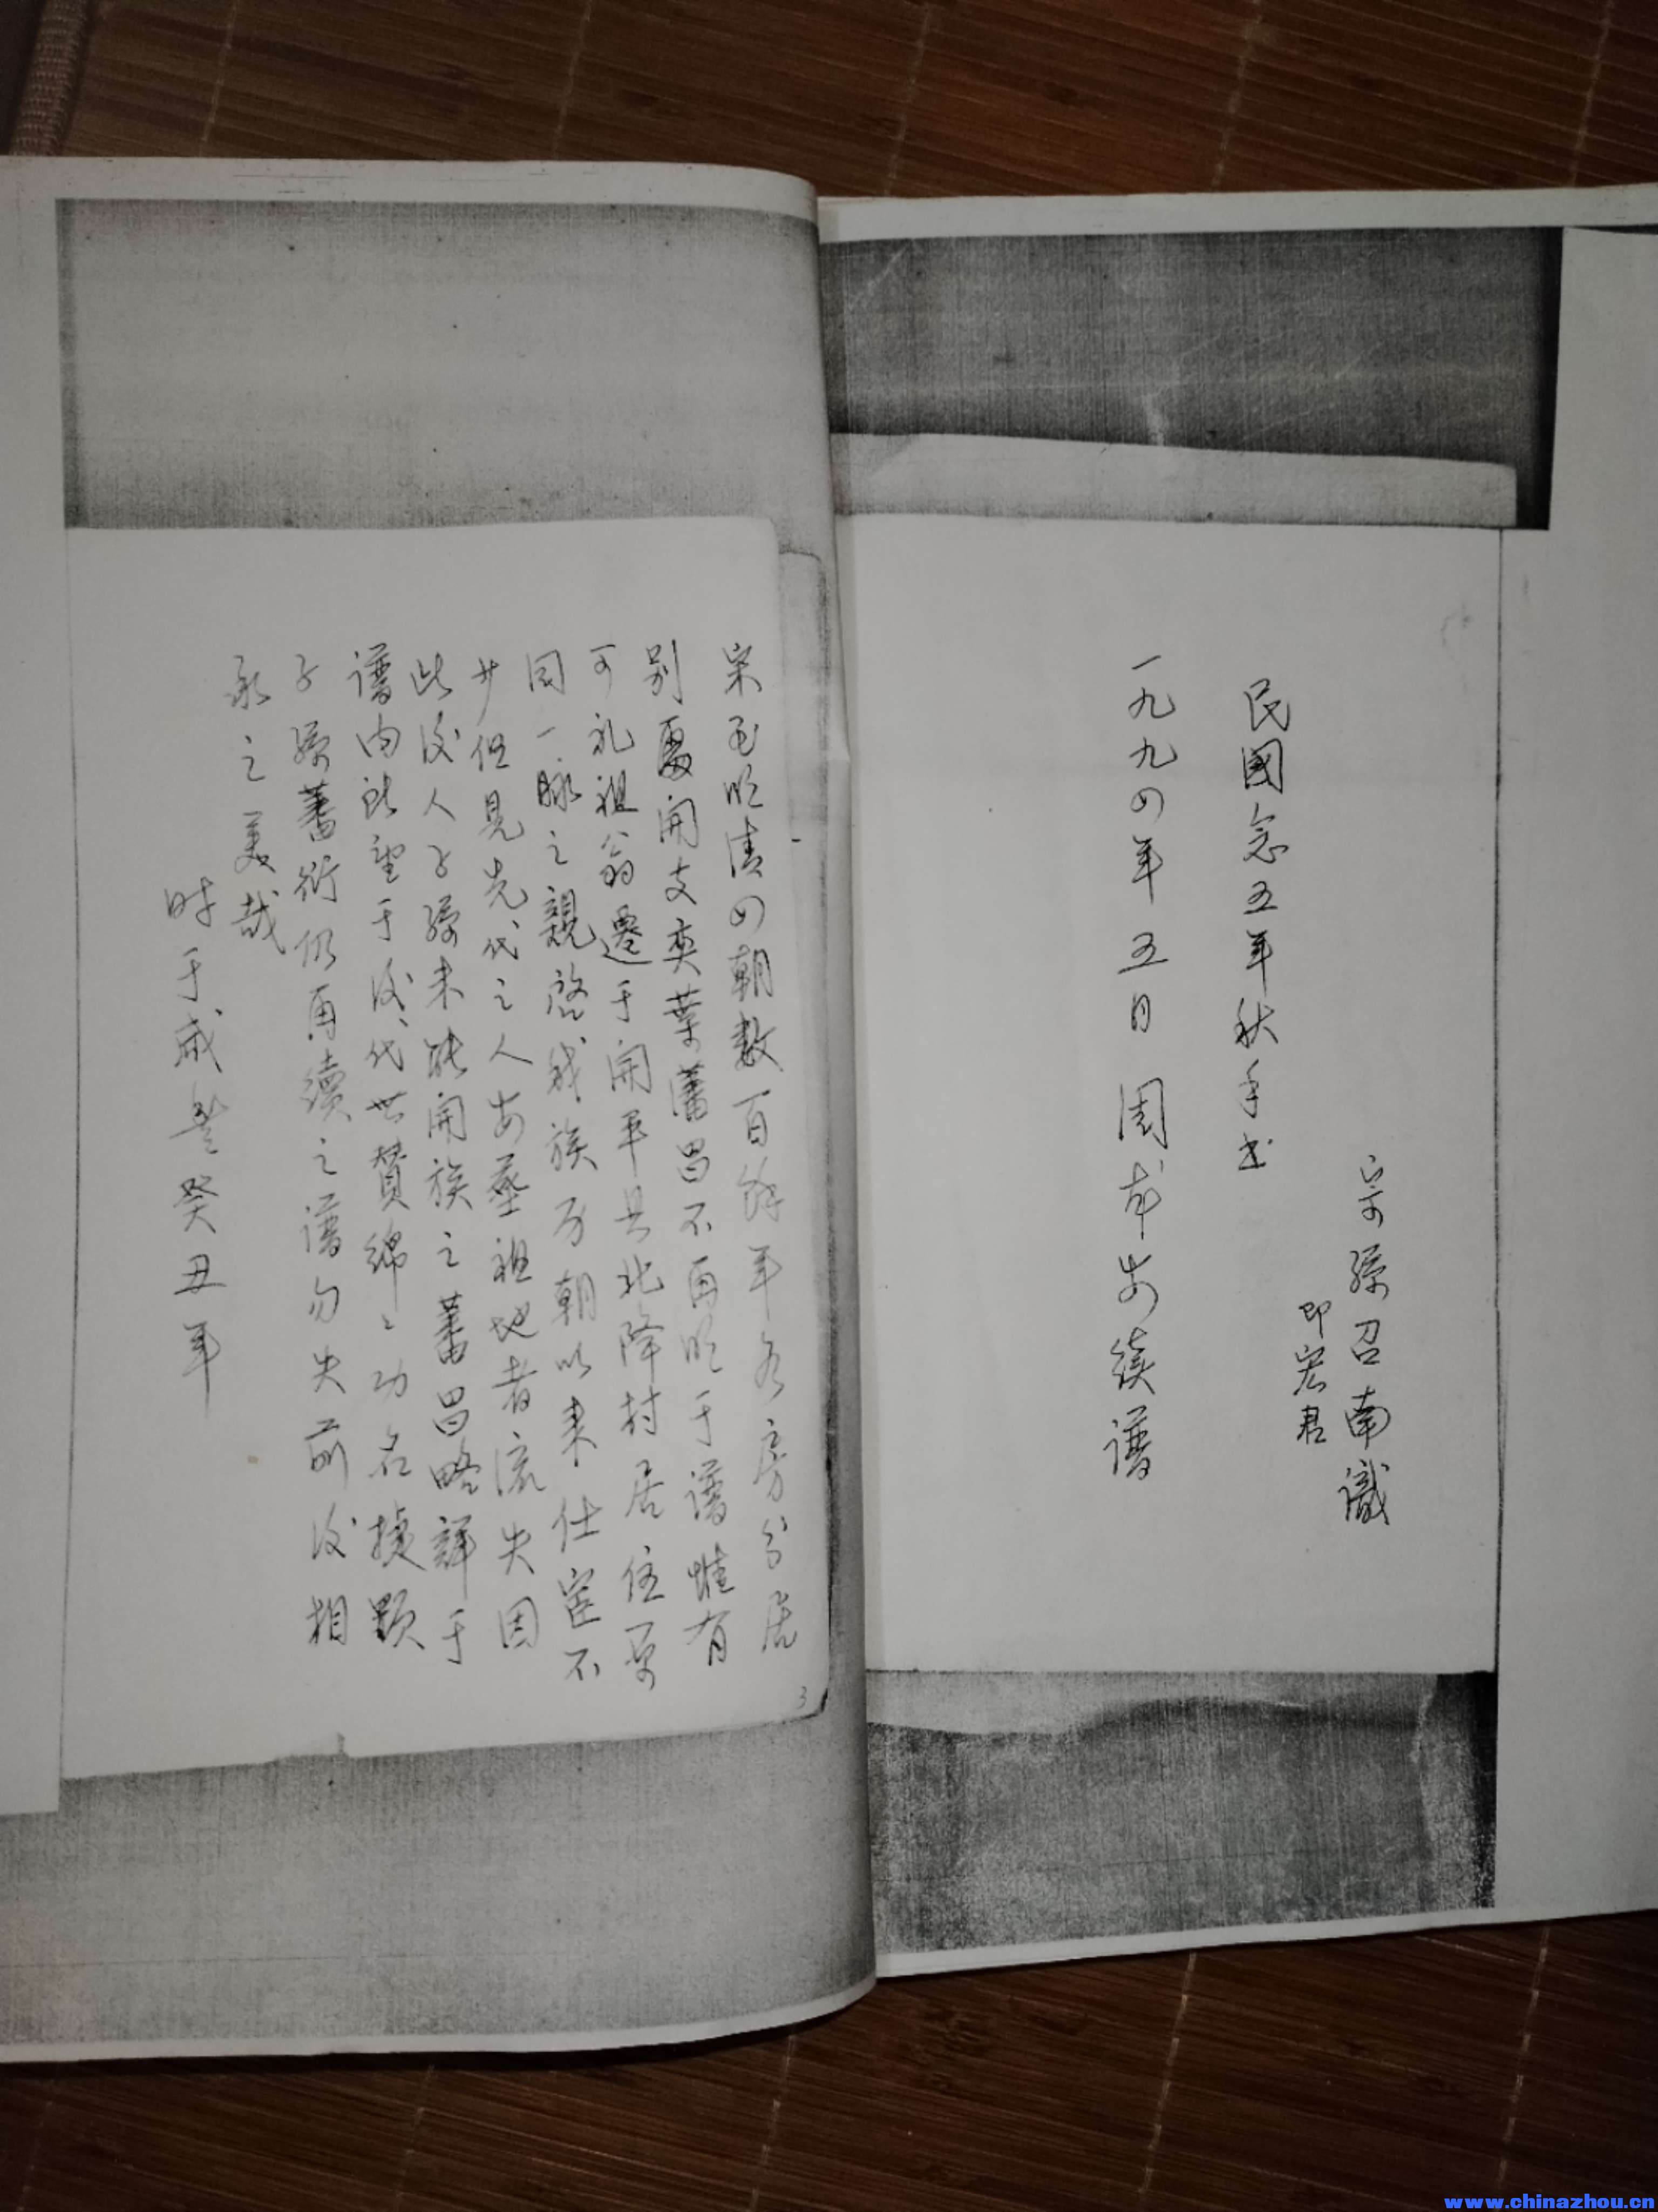 宗孫召南識
即宏君
民國念五年秋手书
一九九四年五月周本安续谱
宋至明清四朝数百餘年各房分居
别處開支奕葉蕃昌不再明于譜惟有
可礼祖翁遷于開平县北降村居住系
同一脉之親啓我族歷朝以来仕宦不
少但見先代之人安葬祖地者流失因
此後人子孫未能開族之蕃昌略詳于
譜内所望于後代世賛綿々功名捷顕
子孫蕃衍仍再續之譜勿失前後相
承之美哉
时于歲癸丑年
3
www.chinazhou.cn